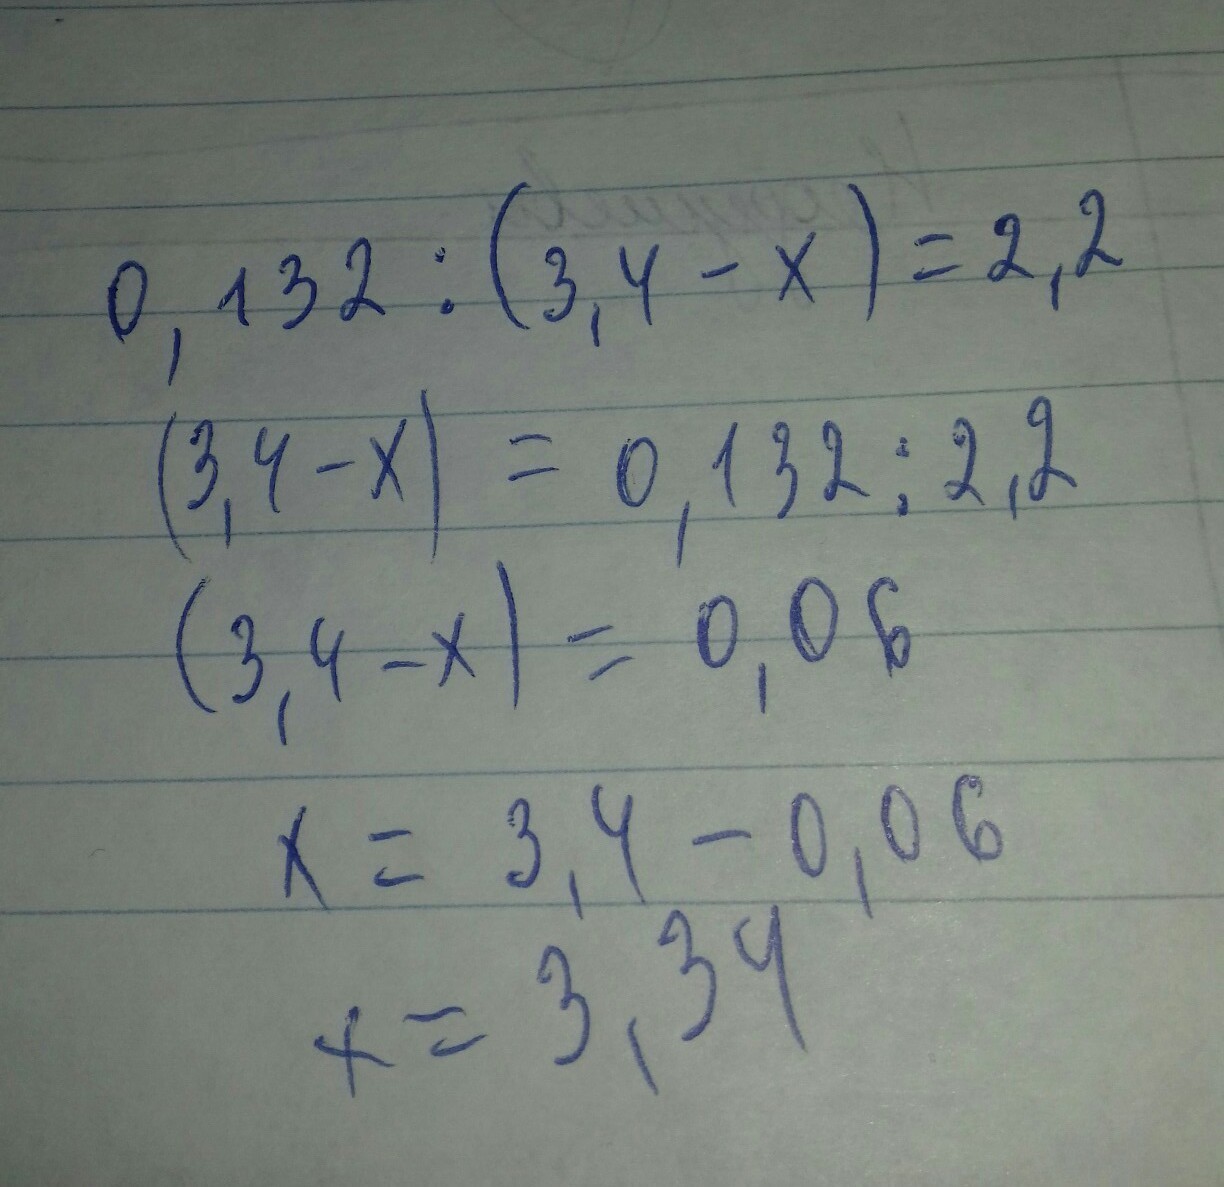 0,132 : (3,4 - x) = 2,2
(3,4 - x) = 0,132 : 2,2
(3,4 - x) = 0,06
x = 3,4 - 0,06
x = 3,34